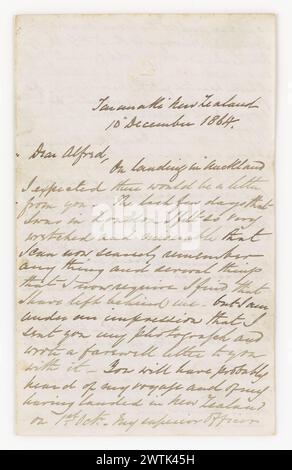 Taranaki New Zealand
10 December 1864.
Dear Alfred,
On landing in Auckland
I expected there would be a letter
from you. The last few days that
I was in London I felt so very
wretched and miserable that
I can now scarcely remember
any thing and several things
that I now require I find that
I have left behind me - but I am
under an impression that I
sent you my photograph and
wrote a farewell letter to you
with it - You will have probably
heard of my voyage and of my
having landed in New Zealand
on 1st Oct. My superior Officer
alamy
Image ID: 2WTK45H
www.alamy.com